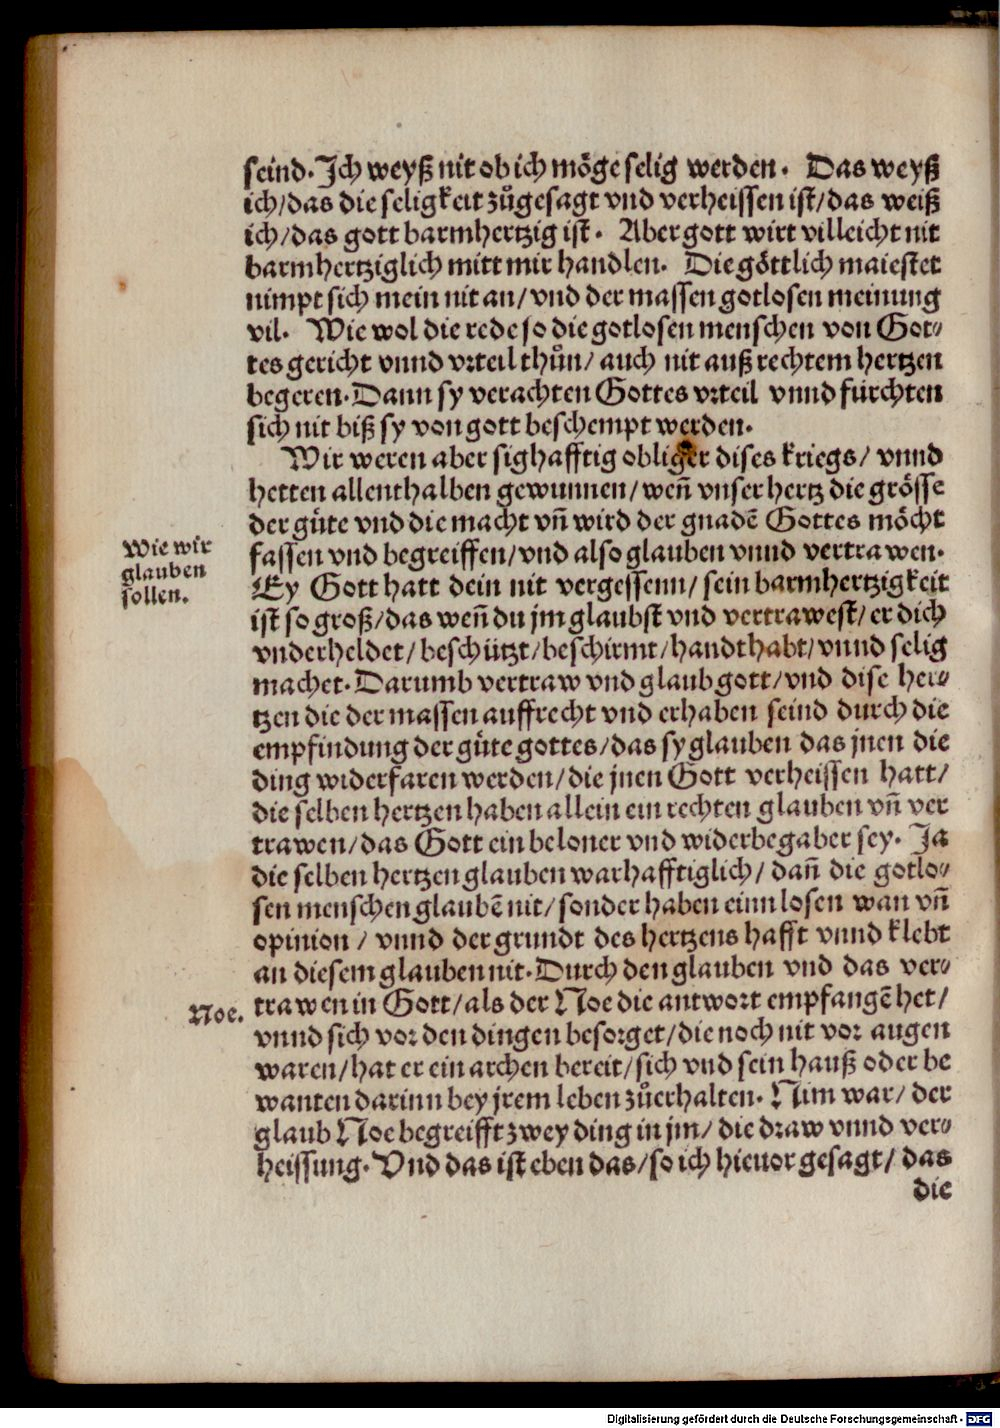 seind. Ich weyß nit ob ich möge selig werden. Das weyß
ich/das die seligkeit zůgesagt vnd verheissen ist/das weiß
ich/das gott barmhertzig ist. Aber gott wirt villeicht nit
barmhertziglich mitt mir handlen. Die göttlich maiestet
nimpt sich mein nit an/vnd der massen gotlosen meinung
vil. Wie wol die rede so die gotlosen menschen von Got⸗
tes gericht vnnd vrteil thůn/ auch nit auß rechtem hertzen
begeren. Dann sy verachten Gottes vrteil vnnd fürchten
sich nit biß sy von gott beschempt werden.
Wir weren aber sighafftig obliger dises kriegs/ vnnd
hetten allenthalben gewunnen/weñ vnser hertz die grösse
der güte vnd die macht vñ wird der gnadē Gottes möcht
Wie wir
glauben
sollen.
fassen vnd begreiffen/vnd also glauben vnnd vertrawen.
Ey Gott hatt dein nit vergessenn/ sein barmhertzigkeit
ist so groß/das weñ du jm glaubst vnd vertrawest/ er dich
vnderheldet/ beschützt/beschirmt/handthabt/vnnd selig
machet. Darumb vertraw vnd glaub gott/vnd dise her⸗
tzen die der massen auffrecht vnd erhaben seind durch die
empfindung der güte gottes/das sy glauben das jnen die
ding widerfaren werden/die jnen Gott verheissen hatt/
die selben hertzen haben allein ein rechten glauben vñ ver
trawen/das Gott ein beloner vnd widerbegaber sey. Ja
die selben hertzen glauben warhafftiglich/ dañ die gotlo⸗
sen menschen glaubē nit/ sonder haben einn losen wan vñ
opinion / vnnd der grundt des hertzens hafft vnnd klebt
an diesem glauben nit. Durch den glauben vnd das ver⸗
Noe.
trawen in Gott/als der Noe die antwort empfangē het/
vnnd sich vor den dingen besorget/die noch nit vor augen
waren/hat er ein archen bereit/sich vnd sein hauß oder be
wanten darinn bey jrem leben zůerhalten. Nim war/ der
glaub Noe begreifft zwey ding in jm/ die draw vnnd ver⸗
heissung. Vnd das ist eben das/so ich hieuor gesagt/ das
die
Digitalisierung gefördert durch die Deutsche Forschungsgemeinschaft - DFG